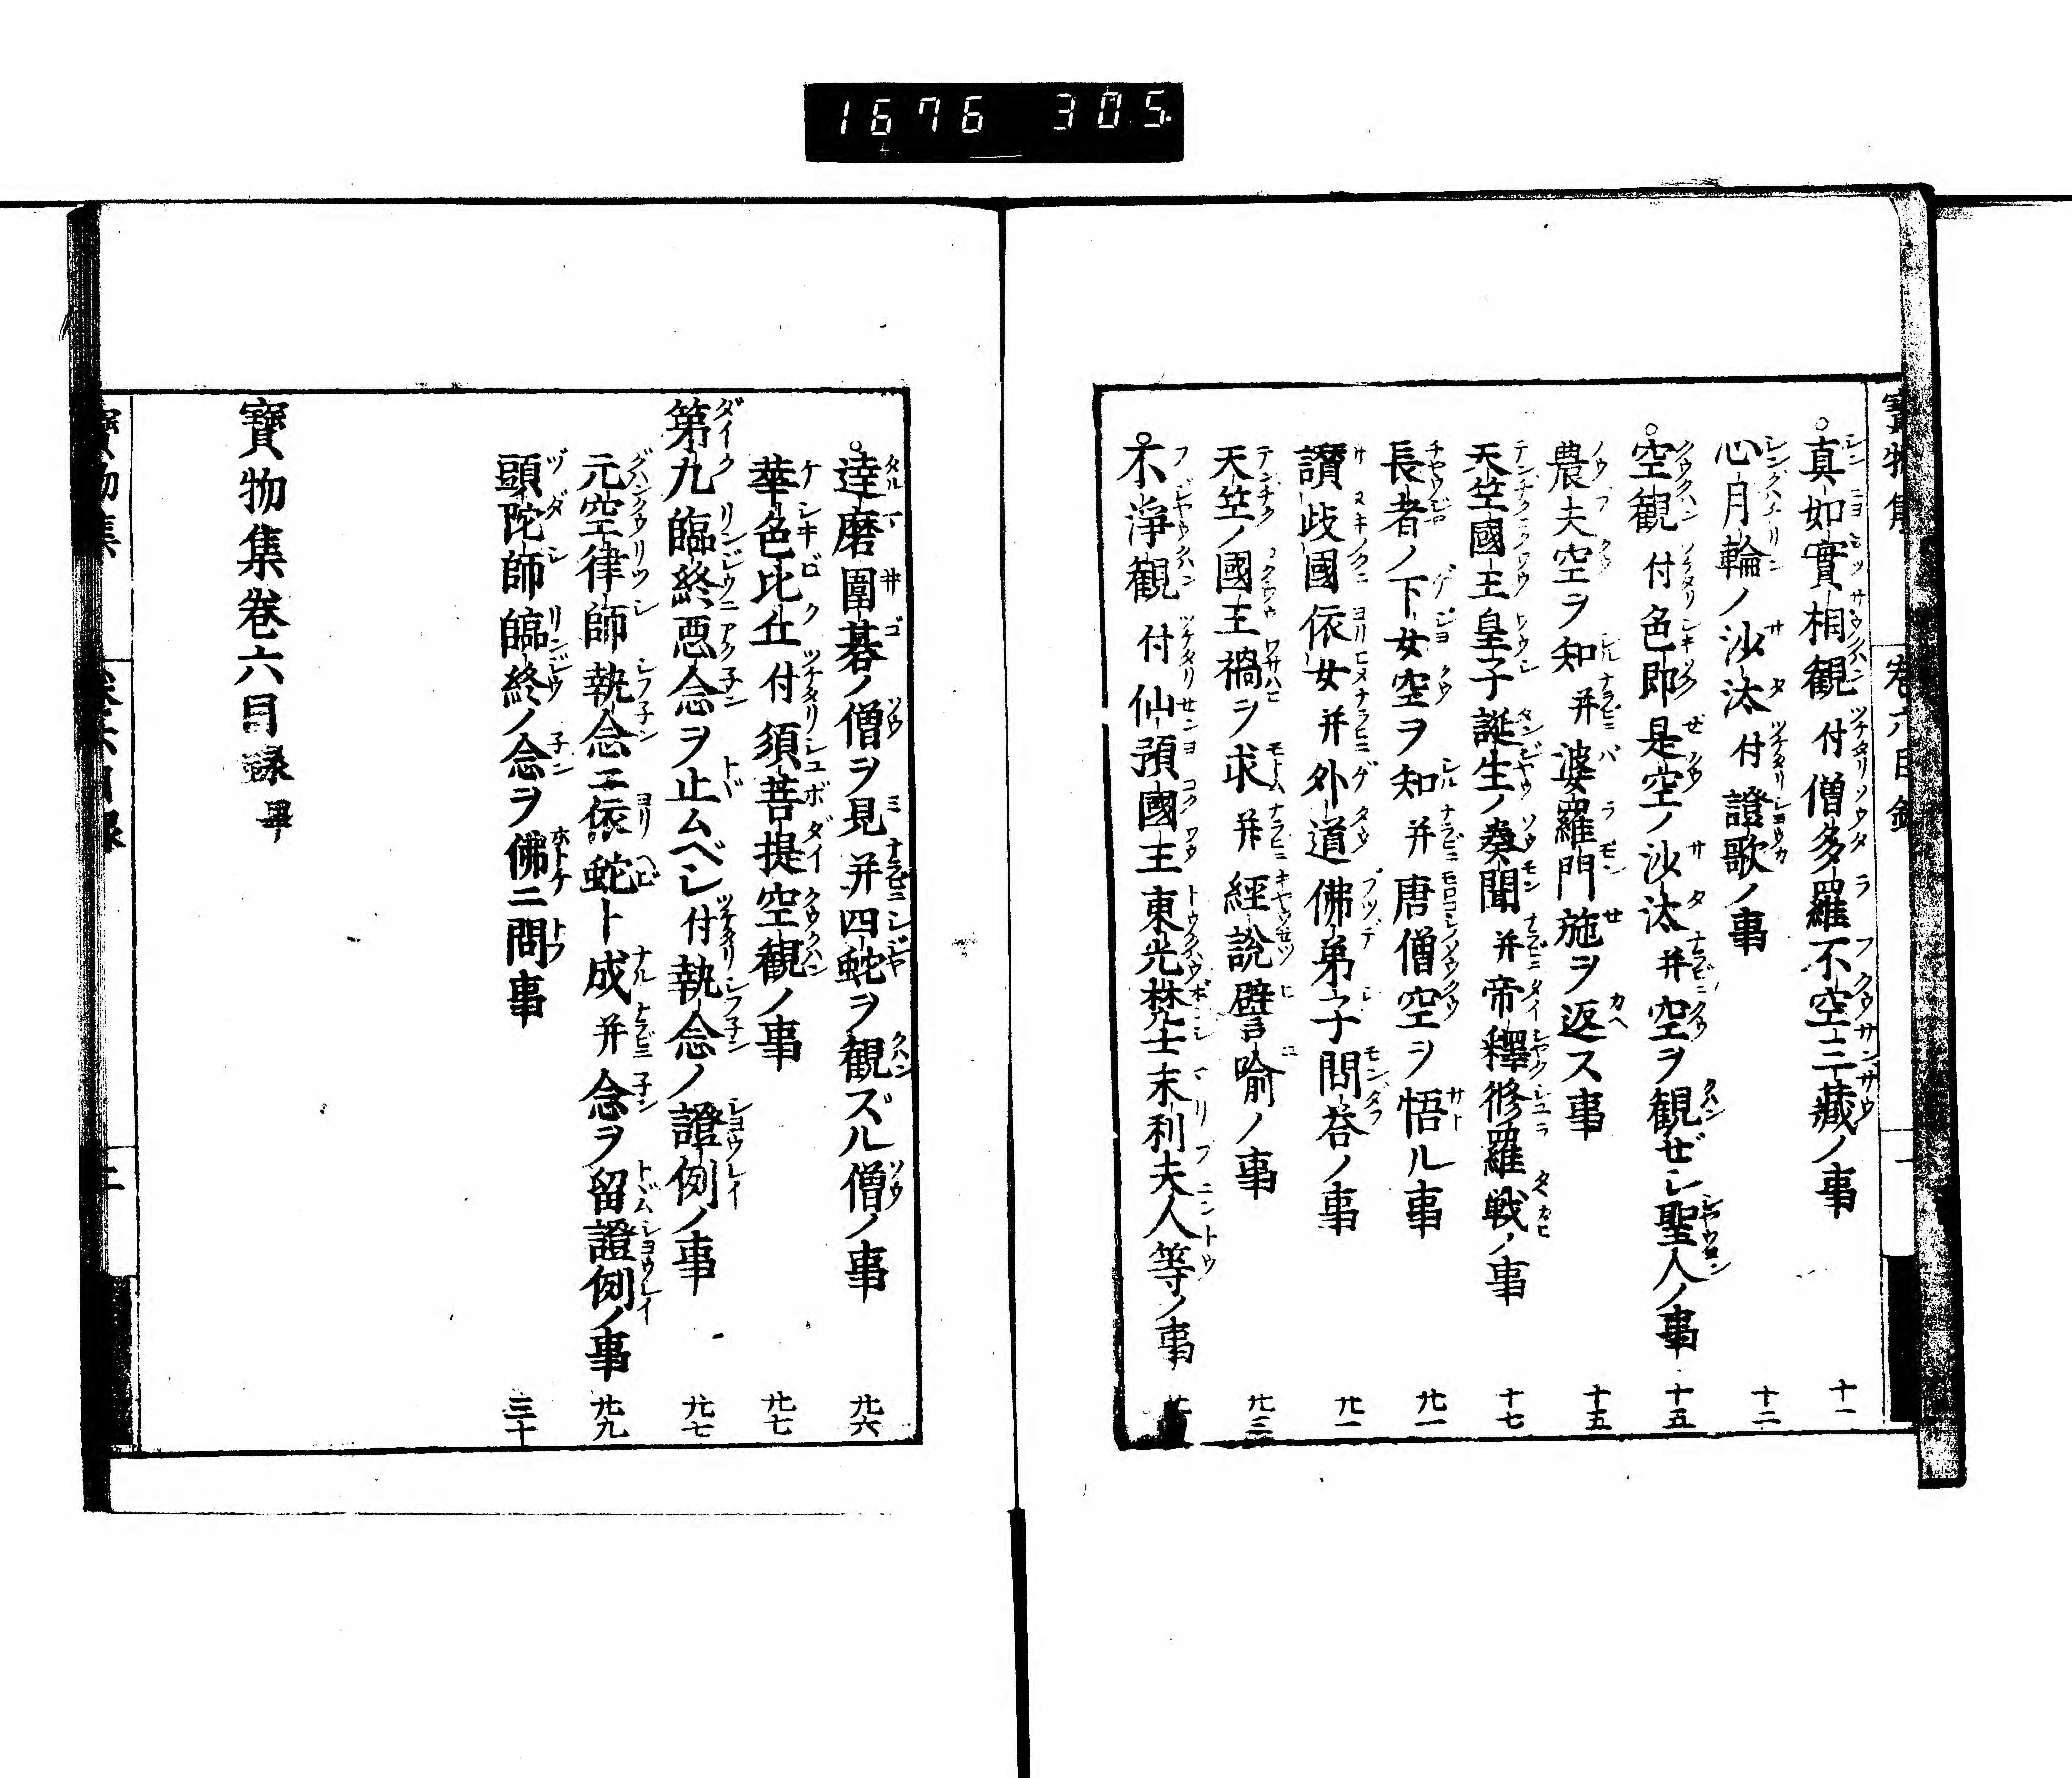 1676 305
寶物集 卷六目錄 一
○真如實相觀付僧多羅不空三藏ノ事 十一
心月輪ノ沙汰付證歌ノ事 十二
○空觀付色即是空ノ沙汰并空ヲ觀ゼシ聖人ノ事 十五
農夫空ヲ知并婆羅門施ヲ返ス事 十五
天竺國王皇子誕生ノ奏聞并帝釋修羅戰ノ事 十七
長者ノ下女空ヲ知并唐僧空ヲ悟ル事 廿一
讃歧國依女并外道佛弟子問荅ノ事 廿一
天竺ノ國王禍ヲ求并經說譬喻ノ事 廿三
○不淨觀付仙預國王東光梵士末利夫人等ノ事
○達磨圍碁ノ僧ヲ見并四蛇ヲ觀ズル僧ノ事 廿六
華色比丘付須菩提空觀ノ事 廿七
第九臨終惡念ヲ止ムベシ付執念ノ證例ノ事 廿七
元空律師執念ニ依蛇ト成并念ヲ留證例ノ事 廿九
頭陀師臨終ノ念ヲ佛ニ問事 三十
寶物集卷六目録畢
寶物集 卷六目録 二